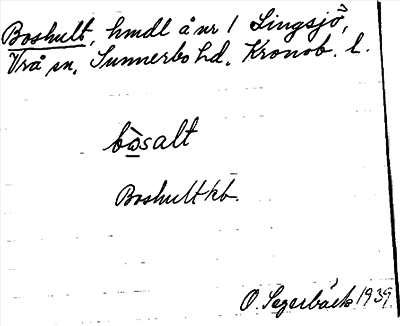 Boshult, hmdl å nr 1 Lingsjö,
Vrå sn. Sunnerbo hd. Kronob. l.
bo̠̊salt
Boshult kb.
O. Segerbäck 1939.